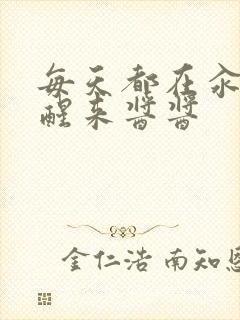 每天都在汆
醒来酱酱
金仁浩 南知恩